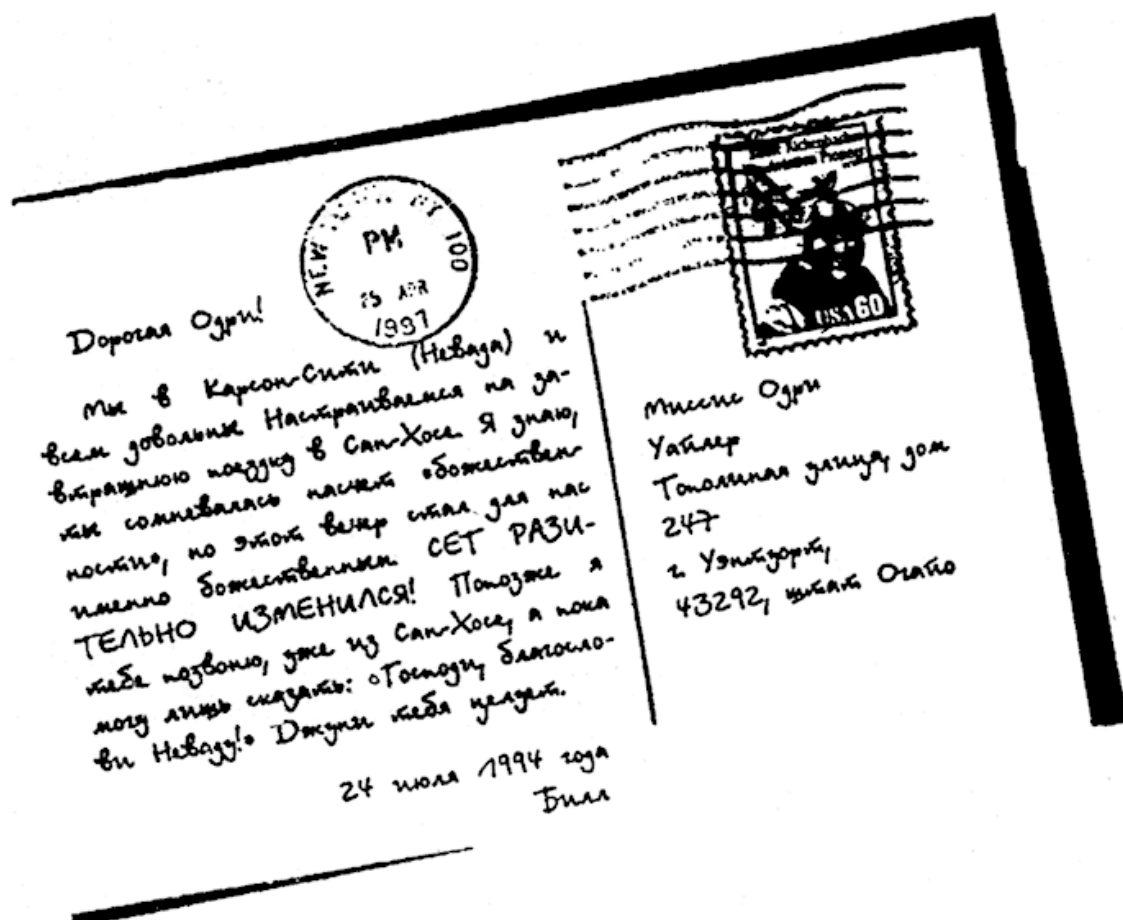 NEW
NY 100
PM
25 APR
1997
Aviation Pioneer
USA60
Дорогая Одри!
Мы в Карсон-Сити (Невада) и
всем довольны. Настраиваемся на за-
втрашнюю поездку в Сан-Хосе. Я знаю,
ты сомневалась насчет «божествен-
ности», но этот вечер стал для нас
именно божественным. СЕТ РАЗИ-
ТЕЛЬНО ИЗМЕНИЛСЯ! Попозже я
тебе позвоню, уже из Сан-Хосе, а пока
могу лишь сказать: «Господи, благосло-
ви Неваду!» Джуни тебя целует.
24 июля 1994 года
Билл
Миссис Одри
Уайлер
Тополиная улица, дом
247
г. Уэнтуорт,
43292, штат Огайо